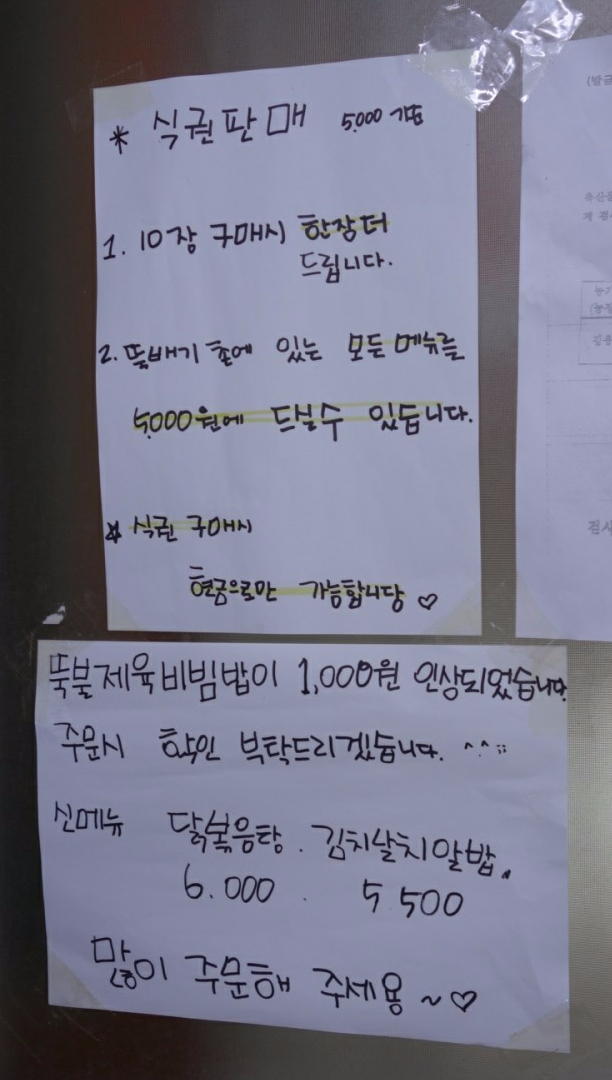 * 식권판매 5,000 기준
1. 10장 구매시 한장더
드립니다.
2. 뚝배기 존에 있는 모든 메뉴를
5,000원에 드실수 있습니다.
* 식권 구매시
현금으로만 가능합니당 ♡
뚝불제육비빔밥이 1,000원 인상되었습니다.
주문시 확인 부탁드리겠습니다. ^^;;
신메뉴 닭볶음탕. 김치날치알밥.
6.000 . 5.500
많이 주문해 주세용 ~♡
(발급
축산물
제
농가
(농장
검사